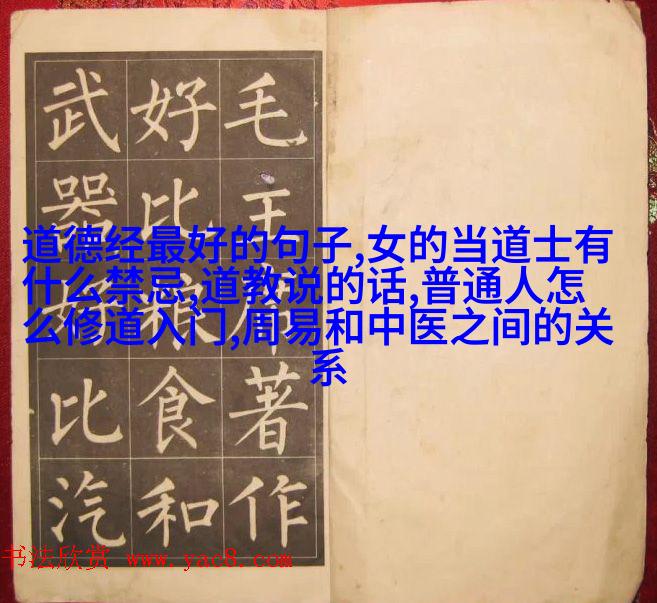 毛主席著作
好比粮食和
武器好比汽
道德经最好的句子,女的当道士有
什么禁忌,道教说的话,普通人怎
么修道入门,周易和中医之间的关
系
书法欣赏 www.yac8.com